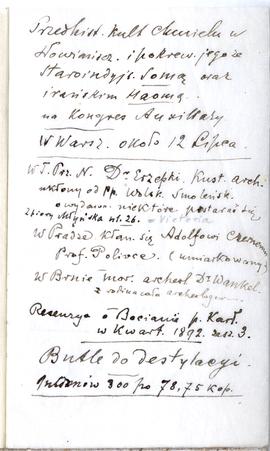 Przedhist. kult Chmielu w
Słowiańszcz. i pokrew. jego ze
Staroindyjs. Somą oraz
irańskim Haomą.
na Kongres Auxiliary
W Warsz. około 12 Lipca.
W T. Prz. N. Dr Erzepki, Kust. arch.
ukłony od pp.
o wydawn. niektóre postarać się
Zbiory Młyńska ul. 26. Victoria
W Pradze kłan. się Adolfowi
Prof. Polivce (umiarkowany)
W Brnie mor. archeol. Dr Wankel.
z archeologów
Recenzya o Bocianie p. Karł.
w Kwart. 1892 zesz. 3.
Butle do destylacyi.
300 po 78,75 kop.